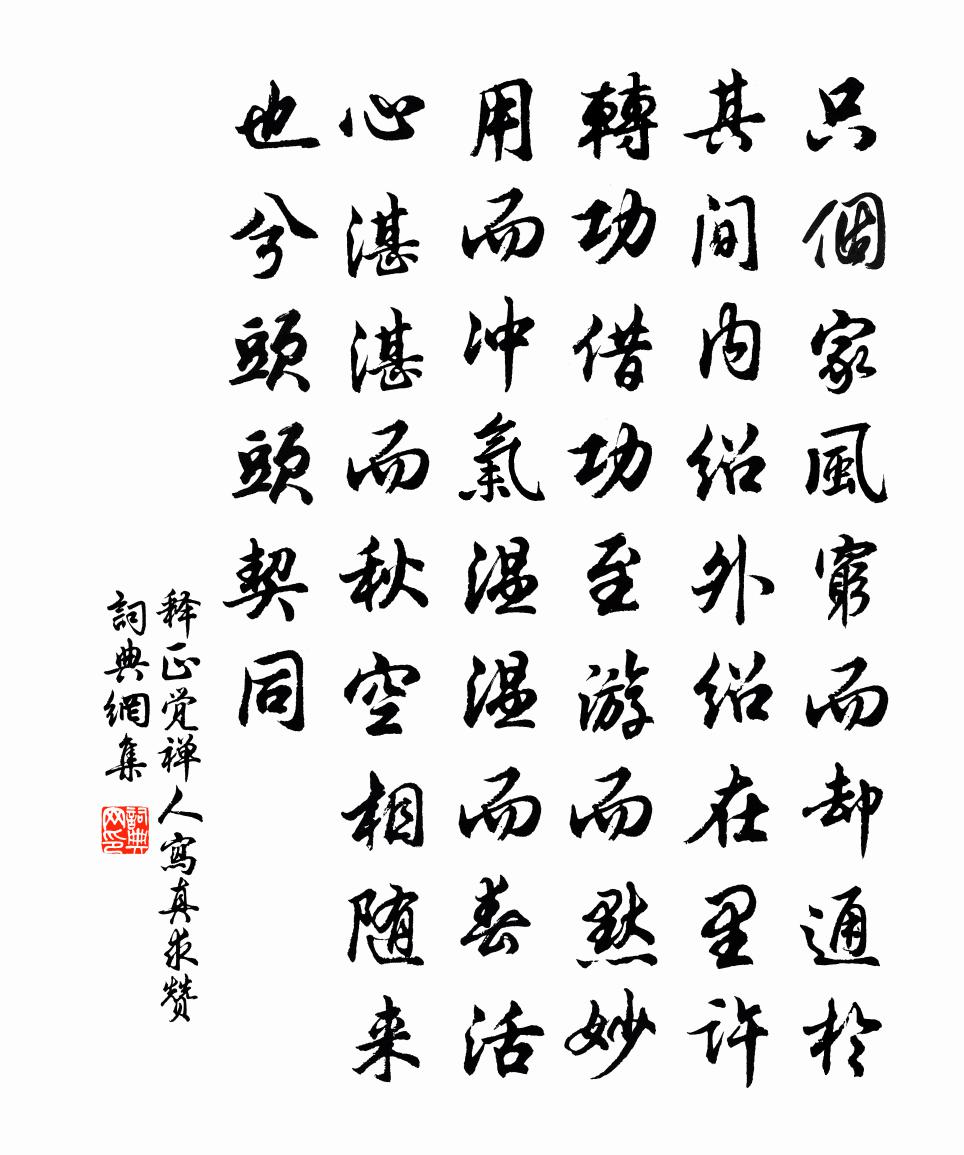 只個家風窮而却通於
其間内紹外紹在里許
轉功借功至游而默妙
用而冲氣温温而春活
心湛湛而秋空相随来
也兮頭頭契同
释正觉禅人寫真求赞
詞典網集
詞典网印